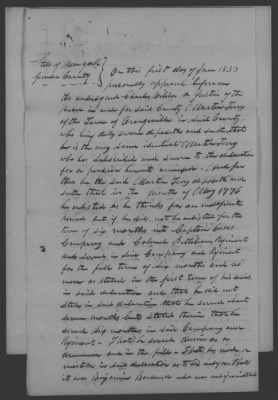 State of New York
County }
On this first day of Jan 1833
personally appeared before me
the undersigned Charles a Justice of the
peace in and for said County Martin
of the Town of Orangeville in said County
who being duly sworn deposeth and saith that
he is the very same identical Martin
who has subscribed and sworn to the declaration
for a pension hereto annexed and fur-
ther he the said Martin deposeth and
saith that in the month of May 1776
he enlisted as he thinks for an indefinite
period but if he did not he enlisted for the
term of six months into Captain
Company and Colonel Regiment
and served in said Company and Regiment
for the full term of six months and no
more as stated in the first term of his service
in said declaration and that he did not
state in said declaration that he served about
seven months but stated therein that he
served six months in said Company and
Regiment - That he served therein as a
drummer and in the - That he made a
mistake in said declaration as to his that
it was Benjamin who was